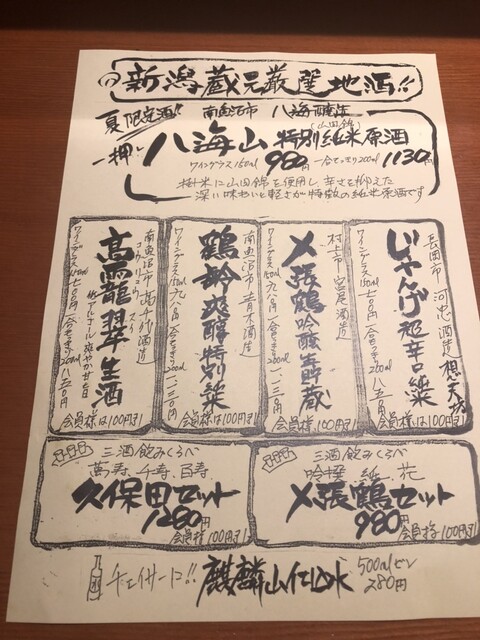 新潟蔵元厳選地酒!!
夏限定酒!! 南魚沼市 八海醸造
一押し 八海山 特別純米原酒
(山田錦)
ワイングラス150ml 980円 一合もっきり200ml 1130円
掛米に山田錦を使用し、辛さを抑えた
深い味わいと軽さが特徴の純米原酒です
長岡市 河忠酒造 想天坊
じゃんげ超辛口純
ワイングラス150ml 七00円 一合もっきり200ml 八五0円
会員様は100円引
村上市 宮尾酒造
〆張鶴 吟醸生貯蔵
ワイングラス150ml 九八0円
会員様は100円引
南魚沼市 青木酒造
鶴齢爽醇特別純
ワイングラス150ml 九八0円 一合もっきり200ml 一一三0円
会員様は100円引
南魚沼市 高千代酒造
コウリュウ スイ
高龍 翠 生酒
ワイングラス150ml 七00円 一合もっきり200ml 八五0円
低アルコール 爽やか甘旨
会員様は100円引
三酒飲みくらべ
萬寿、千寿、百寿
久保田セット
1280円
会員様100円引
三酒飲みくらべ
吟撰 純 花
〆張鶴セット
980円
会員様100円引
チェイサーに!! 麒麟山仕込水 500mlビン
280円